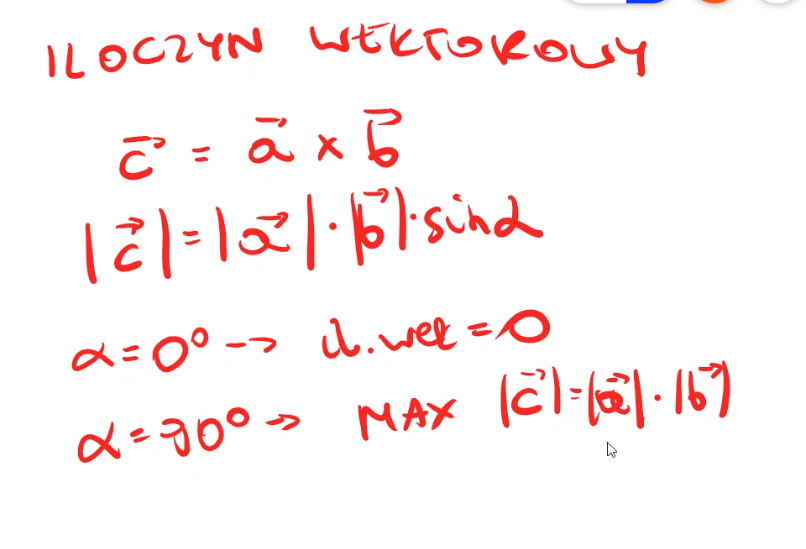 ILOCZYN WEKTOROWY
c⃗ = a⃗ × b⃗
|c⃗| = |a⃗| · |b⃗| · sin α
α = 0° -> il. wek = 0
α = 90° -> MAX |c⃗| = |a⃗| · |b⃗|